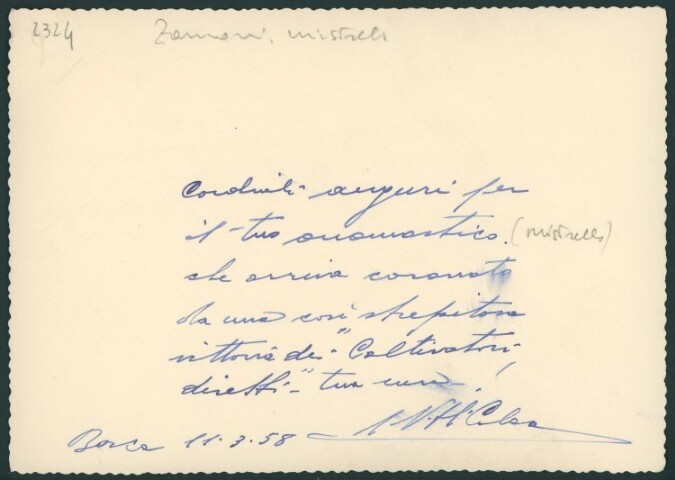 2324
Zamoni. mistrets
Cordiali auguri per
il tuo onomastico. (mistrets)
che arriva coronato
da una così strepitosa
vittoria dei "Coltivatori
diretti" - tua
11.3.58